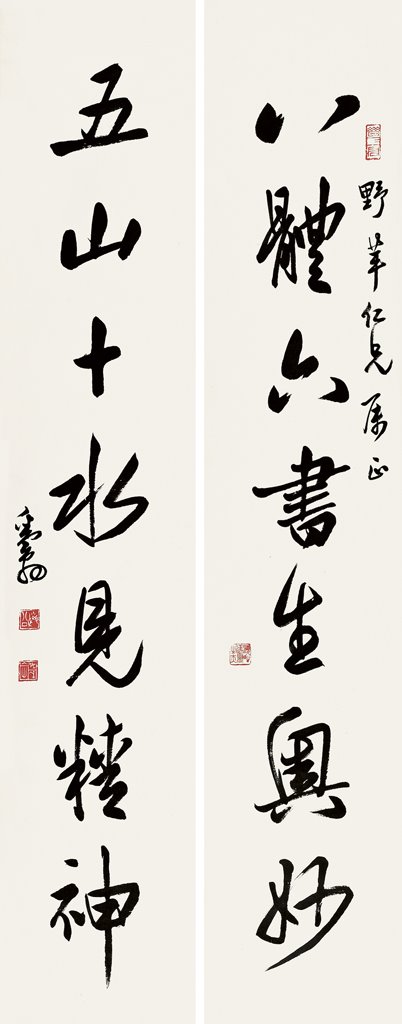 野 仁兄属正
八體六書生奧妙
五山十水見精神